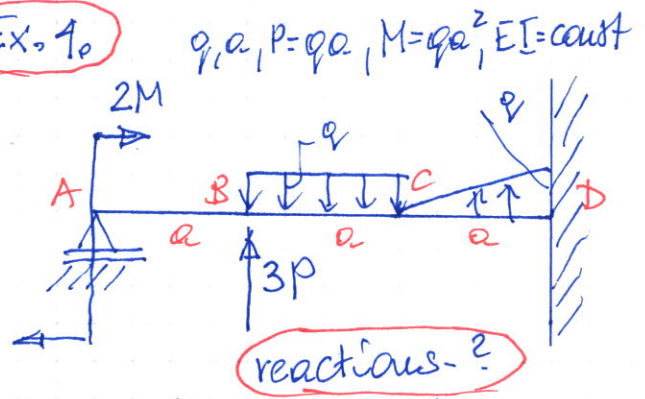 Ex. 1.
q, a, P=qa, M=qa², EI=const
2M
q
q
A
B
C
D
a
a
a
3P
reactions-?